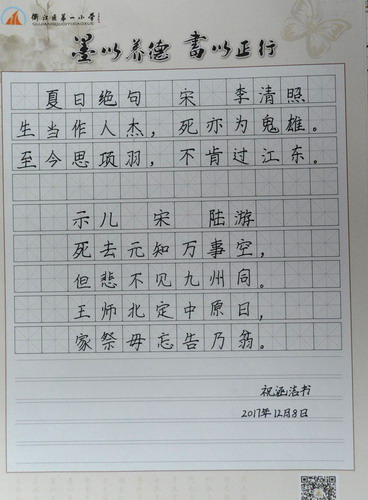 衢江区第一小学
墨以养德 书以正行
夏日绝句 宋 李清照
生当作人杰，死亦为鬼雄。
至今思项羽，不肯过江东。
示儿 宋 陆游
死去元知万事空，
但悲不见九州同。
王师北定中原日，
家祭毋忘告乃翁。
2017年12月8日